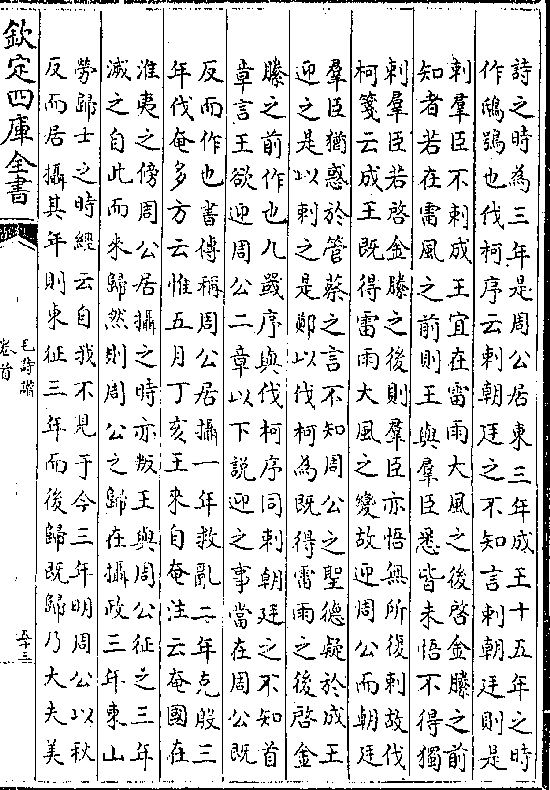 詩之時為三年是周公居東三年成王十五年之時
作鴟鴞也伐柯序云刺朝廷之不知言刺朝廷則是
刺羣臣不刺成王宜在雷雨大風之後啓金縢之前
知者若在雷風之前則王與羣臣悉皆未悟不得獨
刺羣臣若啓金縢之後則羣臣亦悟無所復刺故伐
柯箋云成王既得雷雨大風之變故迎周公而朝廷
羣臣猶惑於管蔡之言不知周公之聖德疑於成王
迎之是以刺之是鄭以伐柯為既得雷雨之後啓金
縢之前作也九罭序與伐柯序同刺朝廷之不知首
章言王欲迎周公二章以下説迎之事當在周公既
反而作也書傳稱周公居攝一年救亂二年克殷三
年伐奄多方云惟五月丁亥王來自奄注云奄國在
淮夷之傍周公居攝之時亦叛王與周公征之三年
滅之自此而來歸然則周公之歸在攝政三年東山
勞歸士之時經云自我不見于今三年明周公以秋
反而居攝其年則東征三年而後歸既歸乃大夫美
欽定四庫全書
毛詩譜
卷首
五十三